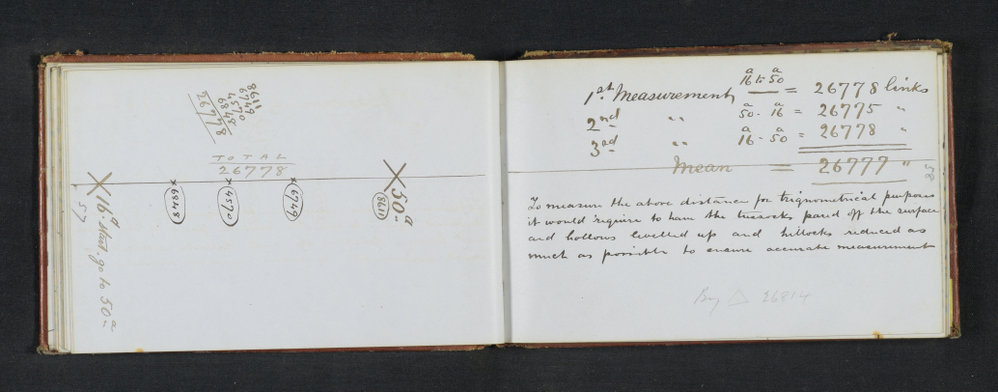 8611
6749
4570
6848
26778
TOTAL
26778
6848
4570
6749
8611
50.a
16.a start. go to 50.a
57
1st. Measurement 16a to 50a = 26778 links
2nd " 50a - 16a = 26775 "
3rd " 16a - 50a = 26778 "
Mean = 26777 "
To measure the above distance for trignometrical purposes
it would require to have the tussocks pared off the surface
and hollows levelled up and hillocks reduced as
much as possible to ensure accurate measurement
By △ 26814